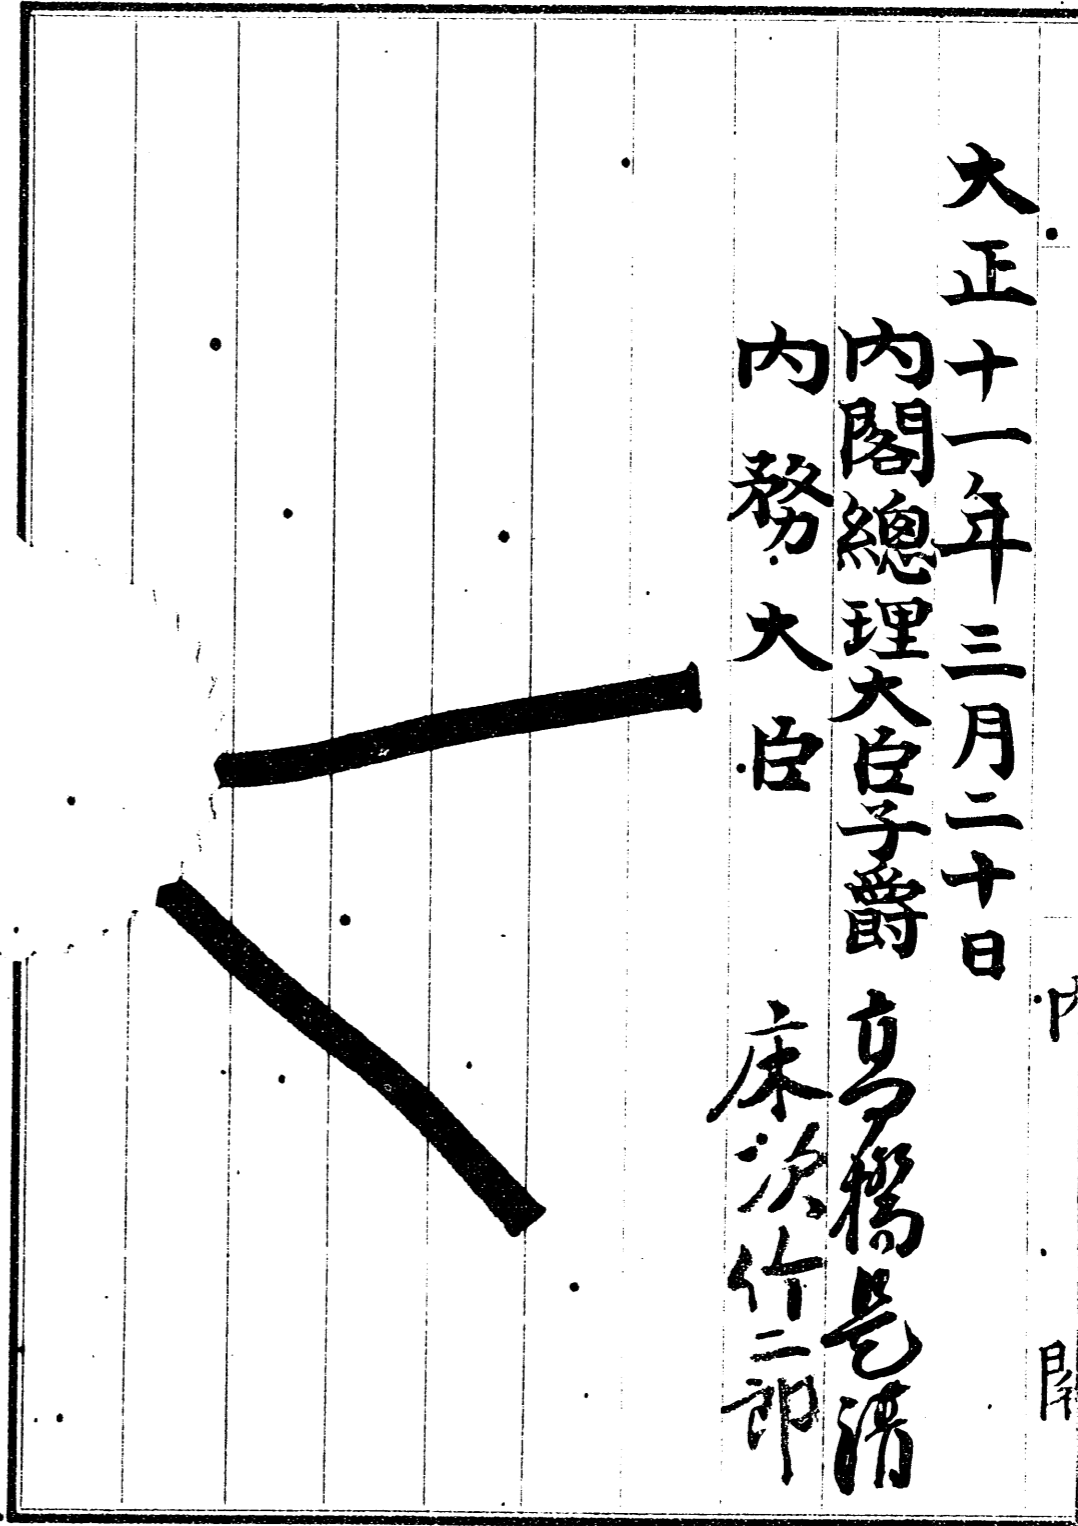 大正十一年三月二十日
內閣總理大臣子爵 高橋是清
內務大臣 床次竹二郎